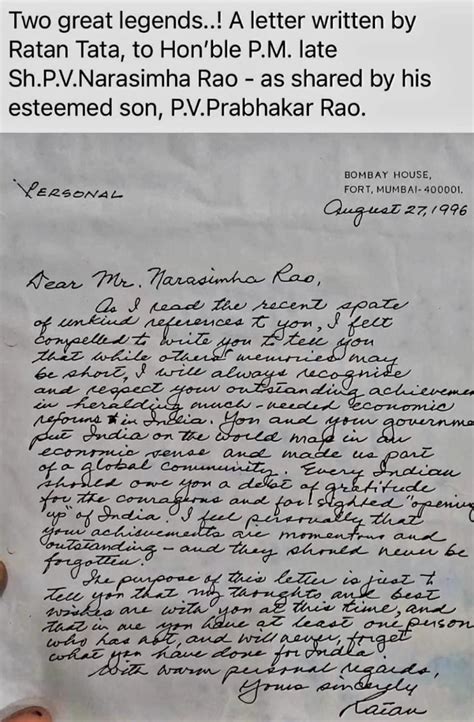 Two great legends..! A letter written by
Ratan Tata, to Hon'ble P.M. late
Sh.P.V.Narasimha Rao - as shared by his
esteemed son, P.V.Prabhakar Rao.
BOMBAY HOUSE,
FORT, MUMBAI-400001.
PERSONAL
August 27, 1996
Dear Mr. Narasimha Rao,
As I read the recent spate
of unkind references to you, I felt
compelled to write you to tell you
that while others' memories may
be short, I will always recognise
and respect your outstanding achieveme
in heralding much-needed economic
reforms in India. You and your governme
put India on the world map in an
economic sense and made us part
of a global community. Every Indian
should owe you a debt of gratitude
for the courageous and far sighted "opening
up" of India. I feel personally that
your achievements are momentous and
outstanding - and they should never be
forgotten.
The purpose of this letter is just to
tell you that my thoughts and best
wishes are with you at this time, and
that in me you have at least one person
who has not, and will never, forget
what you have done for India.
With warm personal regards,
Yours sincerely
Ratan